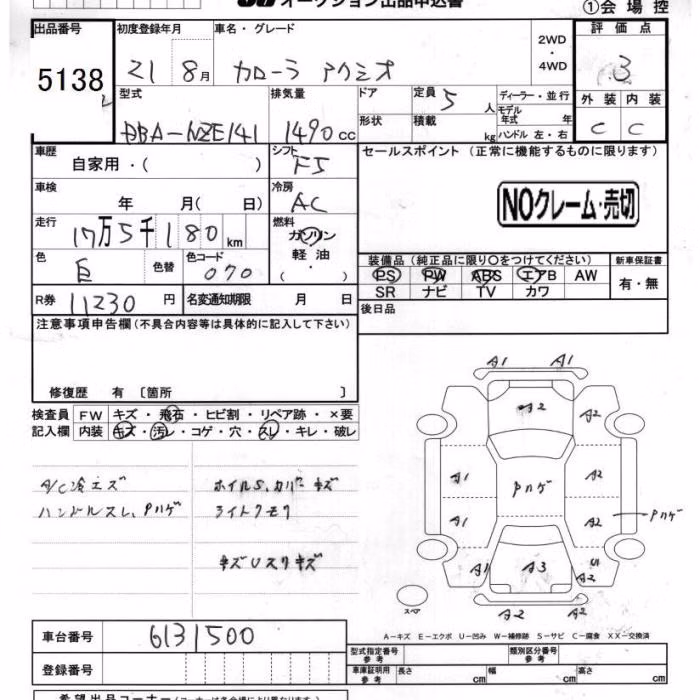 オークション出品申込書
①会場控
出品番号 初度登録年月 車名・グレード 2WD・4WD 評価点
5138 21 8月 カローラ アクシオ 3
型式 排気量 ドア 定員 5人 ディーラー・並行 外装 内装
DBA-NZE141 1490cc 形状 積載 kg モデル年式 年 ハンドル 左・右 C C
車歴 自家用・( ) シフト F5 セールスポイント (正常に機能するものに限ります)
車検 年 月( 日) 冷房 AC NOクレーム・売切
走行 17万5千180km 燃料 ガソリン 軽油・( )
色 白 色替 色コード 070 装備品 (純正品に限り○をつけてください) 新車保証書
PS PW ABS エアB AW 有・無
SR ナビ TV カワ
R券 11230円 名変通知期限 月 日 後日品
注意事項申告欄(不具合内容等は具体的に記入して下さい)
修復歴 有 〔箇所 〕
検査員 FW キズ・飛石・ヒビ割・リペア跡・×要
記入欄 内装 キズ・汚レ・コゲ・穴・スレ・キレ・破レ
A1 A1
A2 A2
A/C冷エズ ホイルS、カバーキズ A1 Pハゲ A2
ハンドルスレ、Pハゲ ライトクモリ A1 A2 Pハゲ
キズUスリキズ A1 A3 U1 A2
スペア A2 A2
A-キズ E-エクボ U-凹み W-補修跡 S-サビ C-腐食 XX-交換済
車台番号 6131500
型式指定番号 参考 類別区分番号 参考
登録番号 車庫証明用 参考 長さ cm 幅 cm 高さ cm
希望出品コーナー